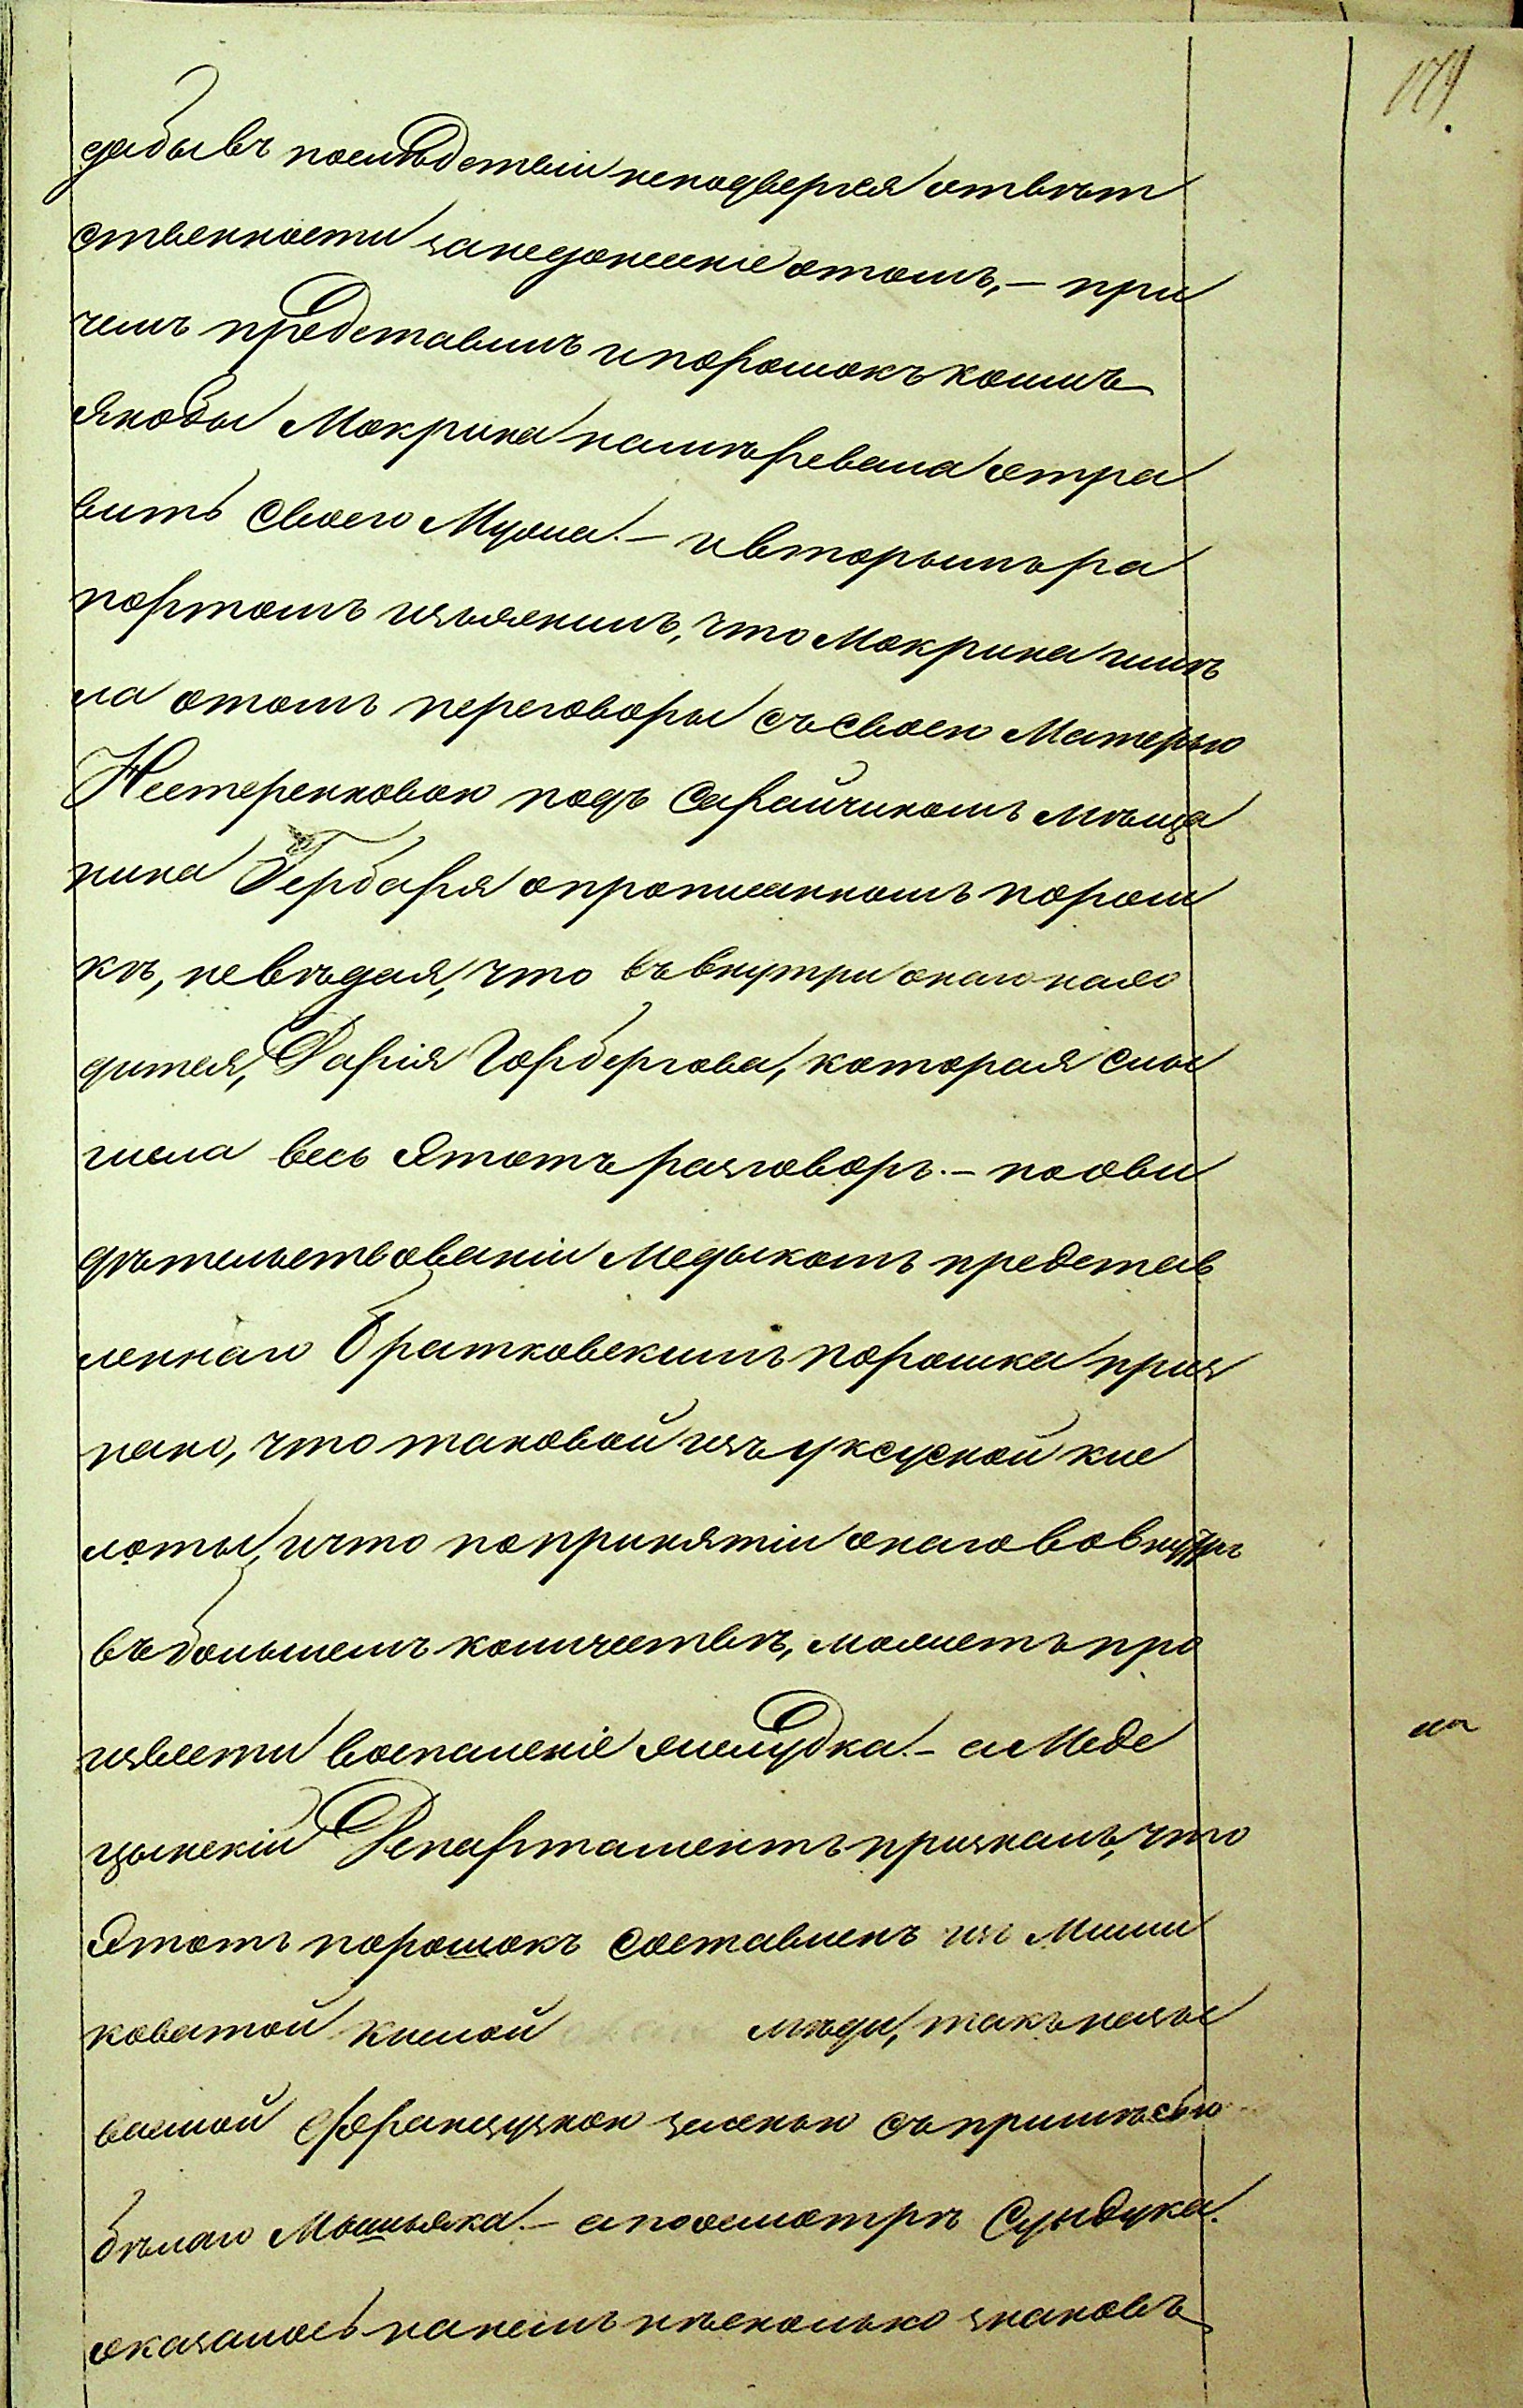 179.
дабы въ послѣдствіи неподвергся отвѣт
ственности занедонесеніе отомъ, — при
чемъ представилъ и порошокъ коимъ
якобы Мокрина намѣревала отра
вить своего Мужа. — и вторымъ ра
портомъ изъяснилъ, что Мокрина имѣ
ла отомъ переговоры съ своею Матерью
Нестеренковою подъ сарайчикомъ мѣща
нина Гербаря опрописанномъ порош
кѣ, невѣдая, что въ внутри онаго нахо
дится, Дарія Горбергова, которая слы
шела весь этотъ разговоръ. — по сви
дѣтельствованіи Медыкомъ представ
леннаго Братковскимъ порошка приз
нано, что таковой изъ уксусной кис
лоты, и что попринятіи онаго вовнутрь
въ большемъ количествѣ, можетъ про
извести воспаленіе желудка. — а Меде
цынскій Департаментъ призналъ, что
этотъ порошокъ составленъ изъ Мыши
коватой кислой мѣди, такъ назы
ваемой Французкою зеленью съ примѣсью
бѣлаго Мышьяка. — а по осмотрѣ Сундука
оказалось на немъ нѣсколько знаковъ